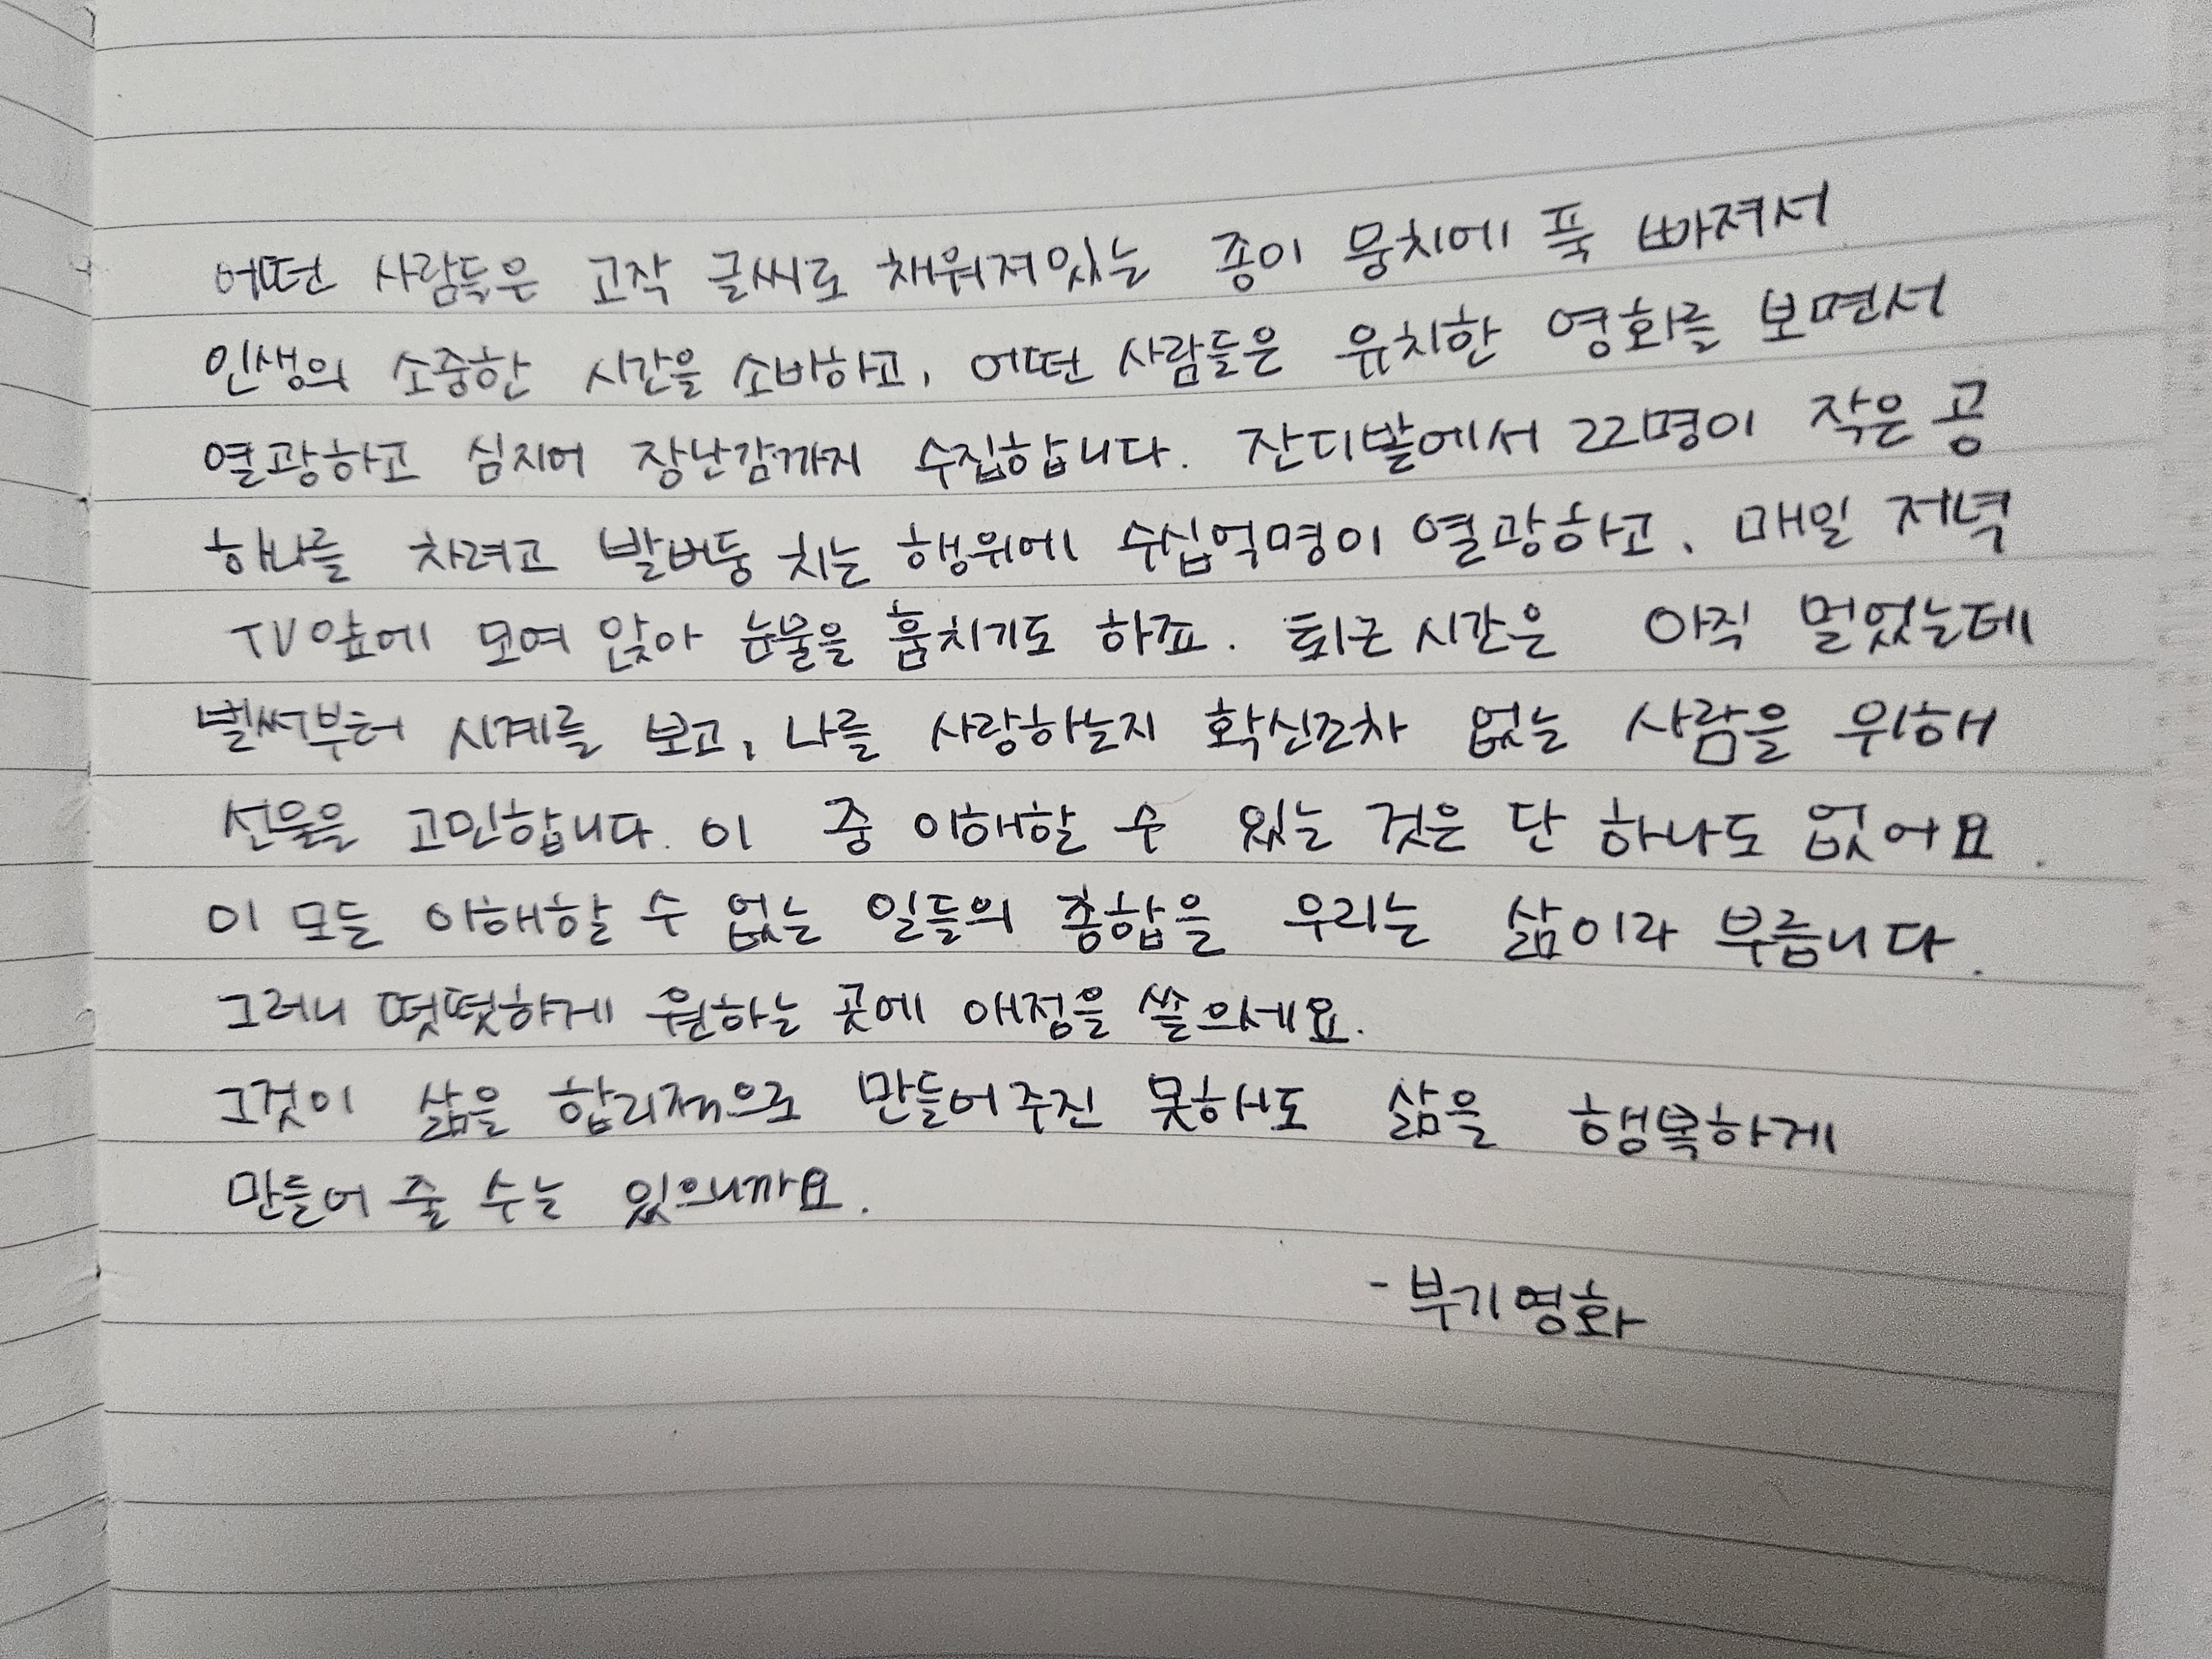 어떤 사람들은 고작 글씨로 채워져있는 종이 뭉치에 푹 빠져서
인생의 소중한 시간을 소비하고, 어떤 사람들은 유치한 영화를 보면서
열광하고 심지어 장난감까지 수집합니다. 잔디밭에서 22명이 작은 공
하나를 차려고 발버둥 치는 행위에 수십억명이 열광하고, 매일 저녁
TV앞에 모여 앉아 눈물을 훔치기도 하죠. 퇴근 시간은 아직 멀었는데
벌써부터 시계를 보고, 나를 사랑하는지 확신조차 없는 사람을 위해
선물을 고민합니다. 이 중 이해할 수 있는 것은 단 하나도 없어요.
이 모든 이해할 수 없는 일들의 종합을 우리는 삶이라 부릅니다.
그러니 떳떳하게 원하는 곳에 애정을 쏟으세요.
그것이 삶을 합리적으로 만들어주진 못해도 삶을 행복하게
만들어 줄 수는 있으니까요.
- 부기영화